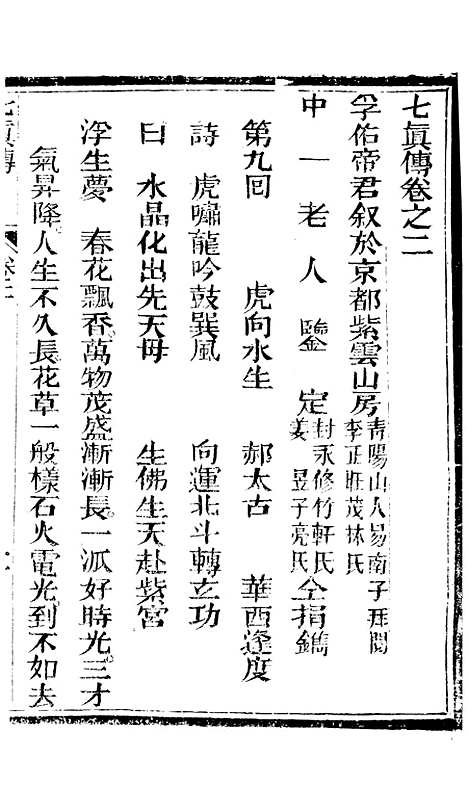 七眞傳卷之二
孚佑帝君叙於京都紫雲山房 青陽山人易南子拜閱 李正旺茂林氏
中一老人鑒定 封永修竹軒氏 姜 昱子亮氏 仝捐鐫
第九回 虎向水生 郝太古 華西逢度
詩 虎嘯龍吟鼓巽風 向運北斗轉玄功
曰 水晶化出先天母 生佛生天赴紫宮
浮生夢 春花飄香萬物茂盛漸漸長一派好時光三才
氣昇降人生不久長花草一般樣石火電光到不如去
七眞傳 卷二